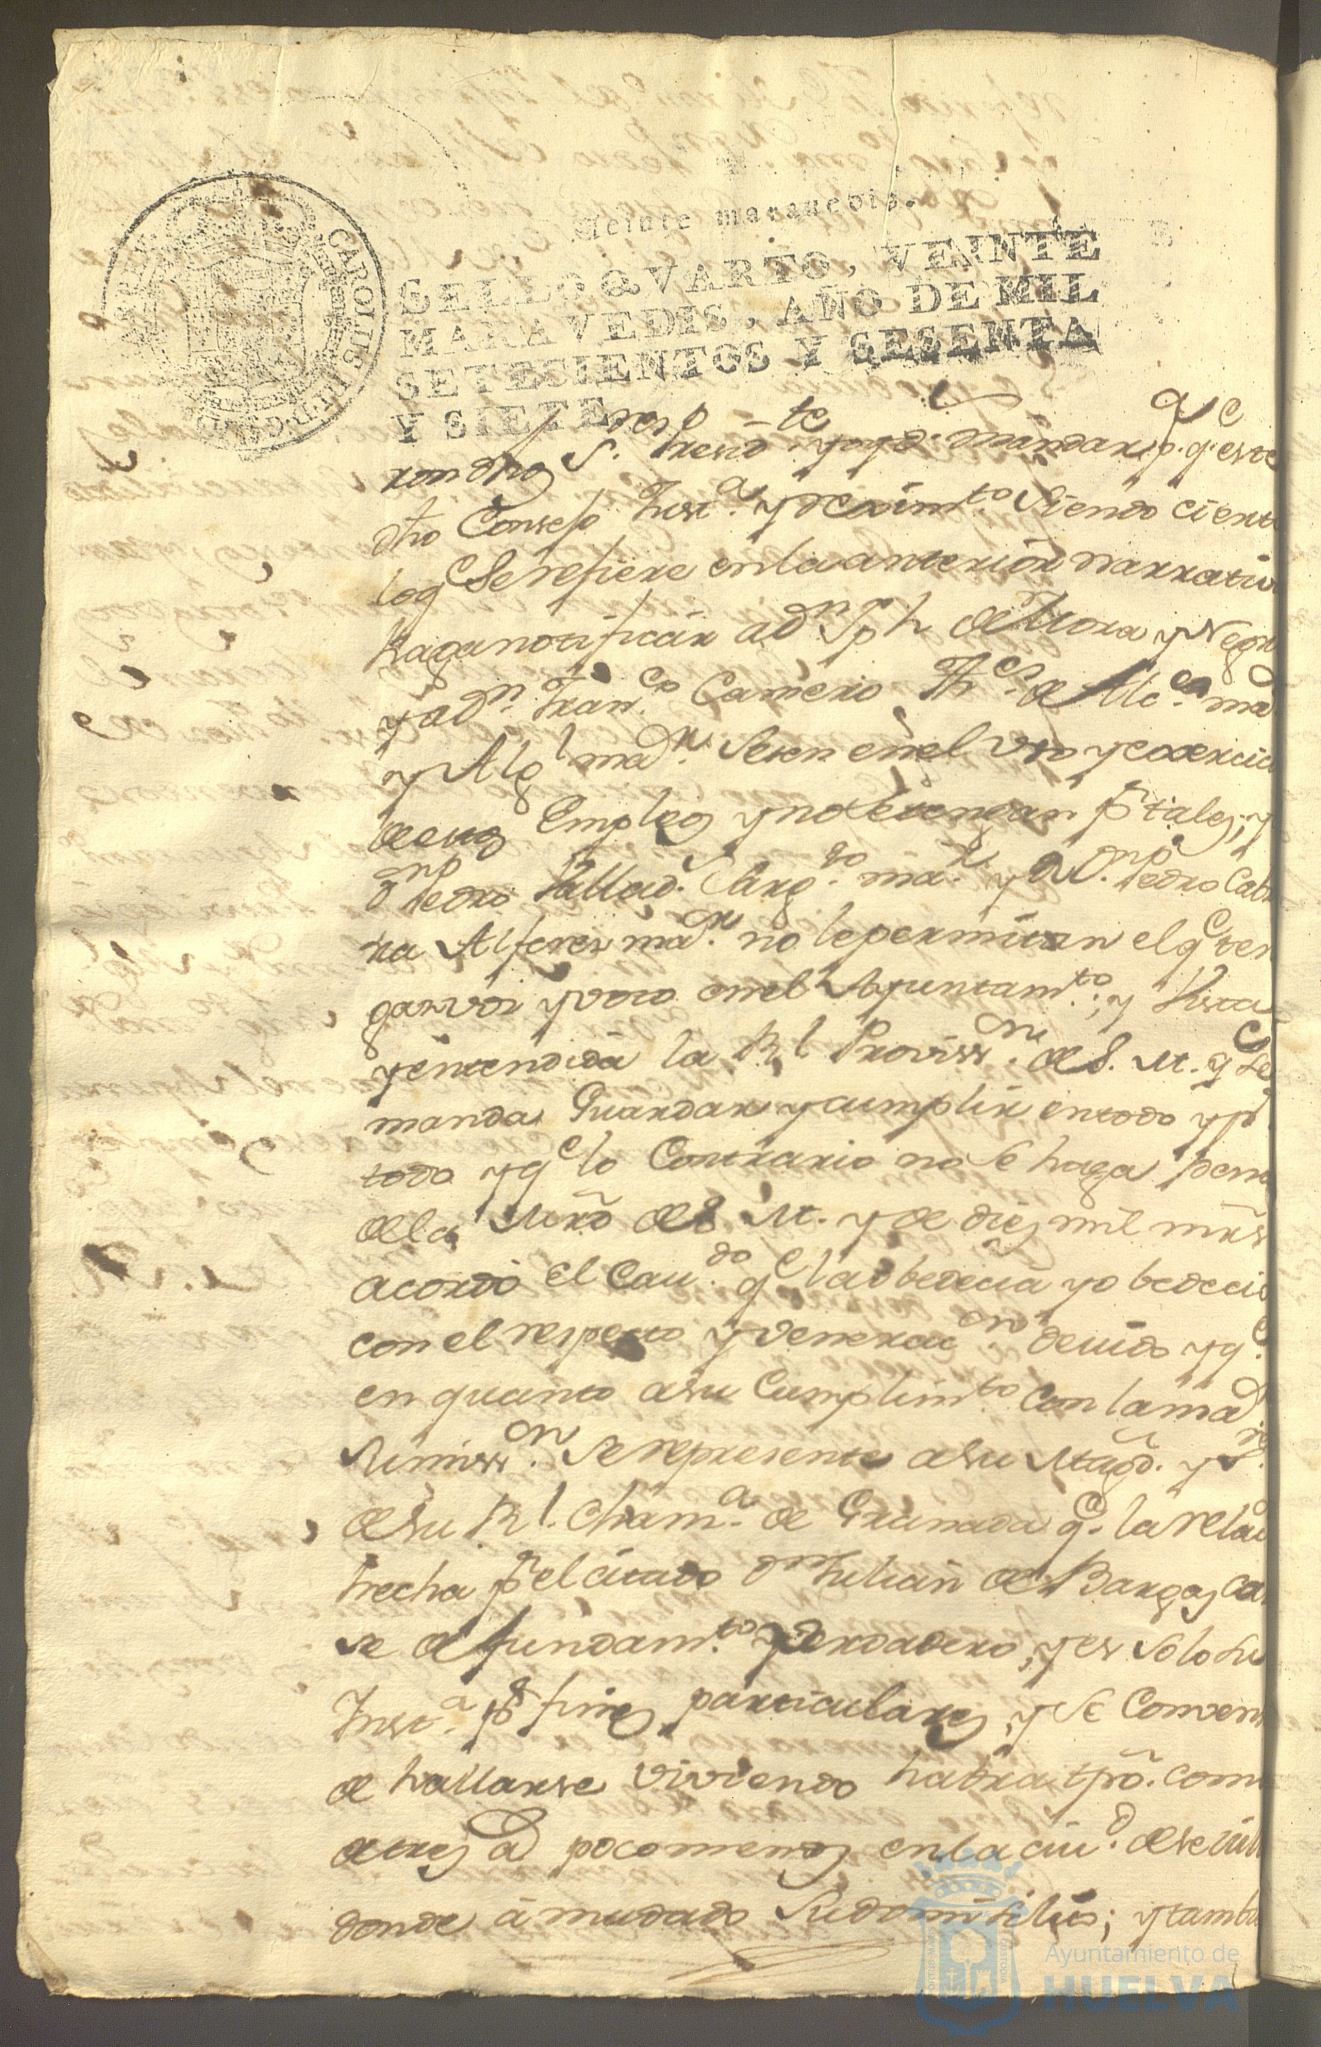 Veinte maravedis.
SELLO QVARTO, VEINTE
MARAVEDIS, AÑO DE MIL
SETECIENTOS Y SESENTA
Y SIETE.
CAROLUS III D G
ron dhos S.res Presid.te y oyd.s mandar, p.r q.e este
dho Consejo Just.a y Reximt.o Siendo ciert
loq.e Se refiere en la anterior narrativ
haga notificar a d.n Jph de Mora y Negr
y a d.n Fran.co Camero Th.e de Alc.e ma
y Alg.l ma.r Sesen en el vso y exercici
de sus Empleos y no le tengan p.r tales; y
d.n Pedro Vallad.s Sarg.to ma.r y a D.n Pedro Cab
ra Alferes ma.r no le permitan el q.e ten
gan voi y voto en el Ayuntam.to; y Vista
y entendida la R.l Proviss.n de S. M. q.e Se
manda Guardar y cumplir en todo y p.r
todo y q.e lo Contrario no Se haga pena
de la Mrd de S. M. y de diez mil mrs
acordó el Cau.do q.e la obedecia y obedecio
con el respecto y venerac.on deuido y q.e
en quanto a su Cumplim.to Con la ma.r
Sumiss.on Se represente a su Magd. y S.res
de su R.l Cham.a de Granada q.e la relac
hecha p.r el citado d.n Julian de Bargas ca
se de fundam.to verdadero, y es solo Su
Inst.a p.r fines particulares, y Se Conven
de hallarse viviendo habra tpo. com
de tres a.s poco menos en la ciu.d de Seuill
donde á mudado Su domisilio; y tambi
Ayuntamiento de
HUELVA